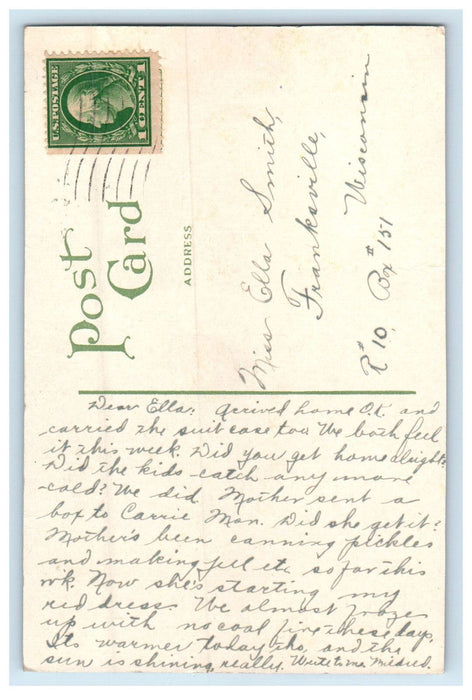 U.S. POSTAGE
1 CENT 1
Post
Card
ADDRESS
Miss Ella Smith,
Franksville,
Wisconsin
R# 10, Bx# 151
Dear Ella: Arrived home O.K. and
carried the suit case too. We both feel
it this week. Did you get home alright?
Did the kids catch any more
cold? We did. Mother sent a
box to Carrie Mon. Did she get it?
Mother's been canning pickles
and making jell etc so far this
wk. Now she's starting my
red dress. We almost froze
up with no coal fire these days.
Its warmer today tho, and the
sun is shining, really. Write to me Mildred.